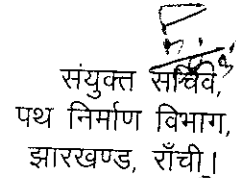 संयुक्त सचिव,
पथ निर्माण विभाग,
झारखण्ड, राँची।